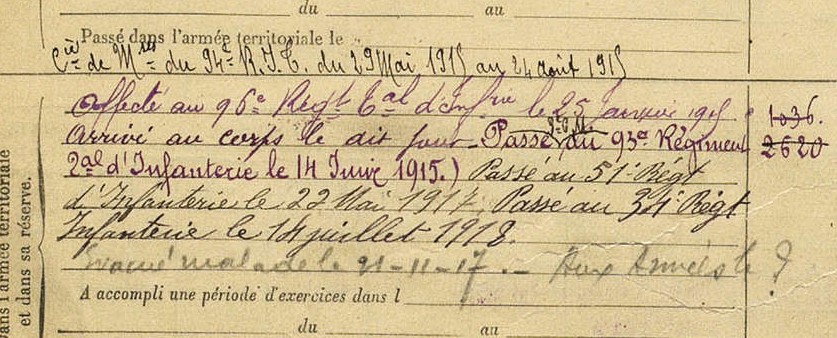 du au
Passé dans l'armée territoriale le
Cie de Mses du 94e R.I.T. du 29 Mai 1915 au 24 août 1915
Affecté au 96e Régt Tal d'Infrie le 25 Janvier 1915 1036.
Arrivé au corps le dit jour Passé au 93e Régiment 2620
Tal d'Infanterie le 14 Juin 1915.) Passé au 51e Régt
d'Infanterie le 22 Mai 1917. Passé au 34e Régt
Infanterie le 14 juillet 1918.
Evacué malade le 21-11-17 .- Aux Armées le ?
A accompli une période d'exercices dans l
du au
dans l'armée territoriale
et dans sa réserve.